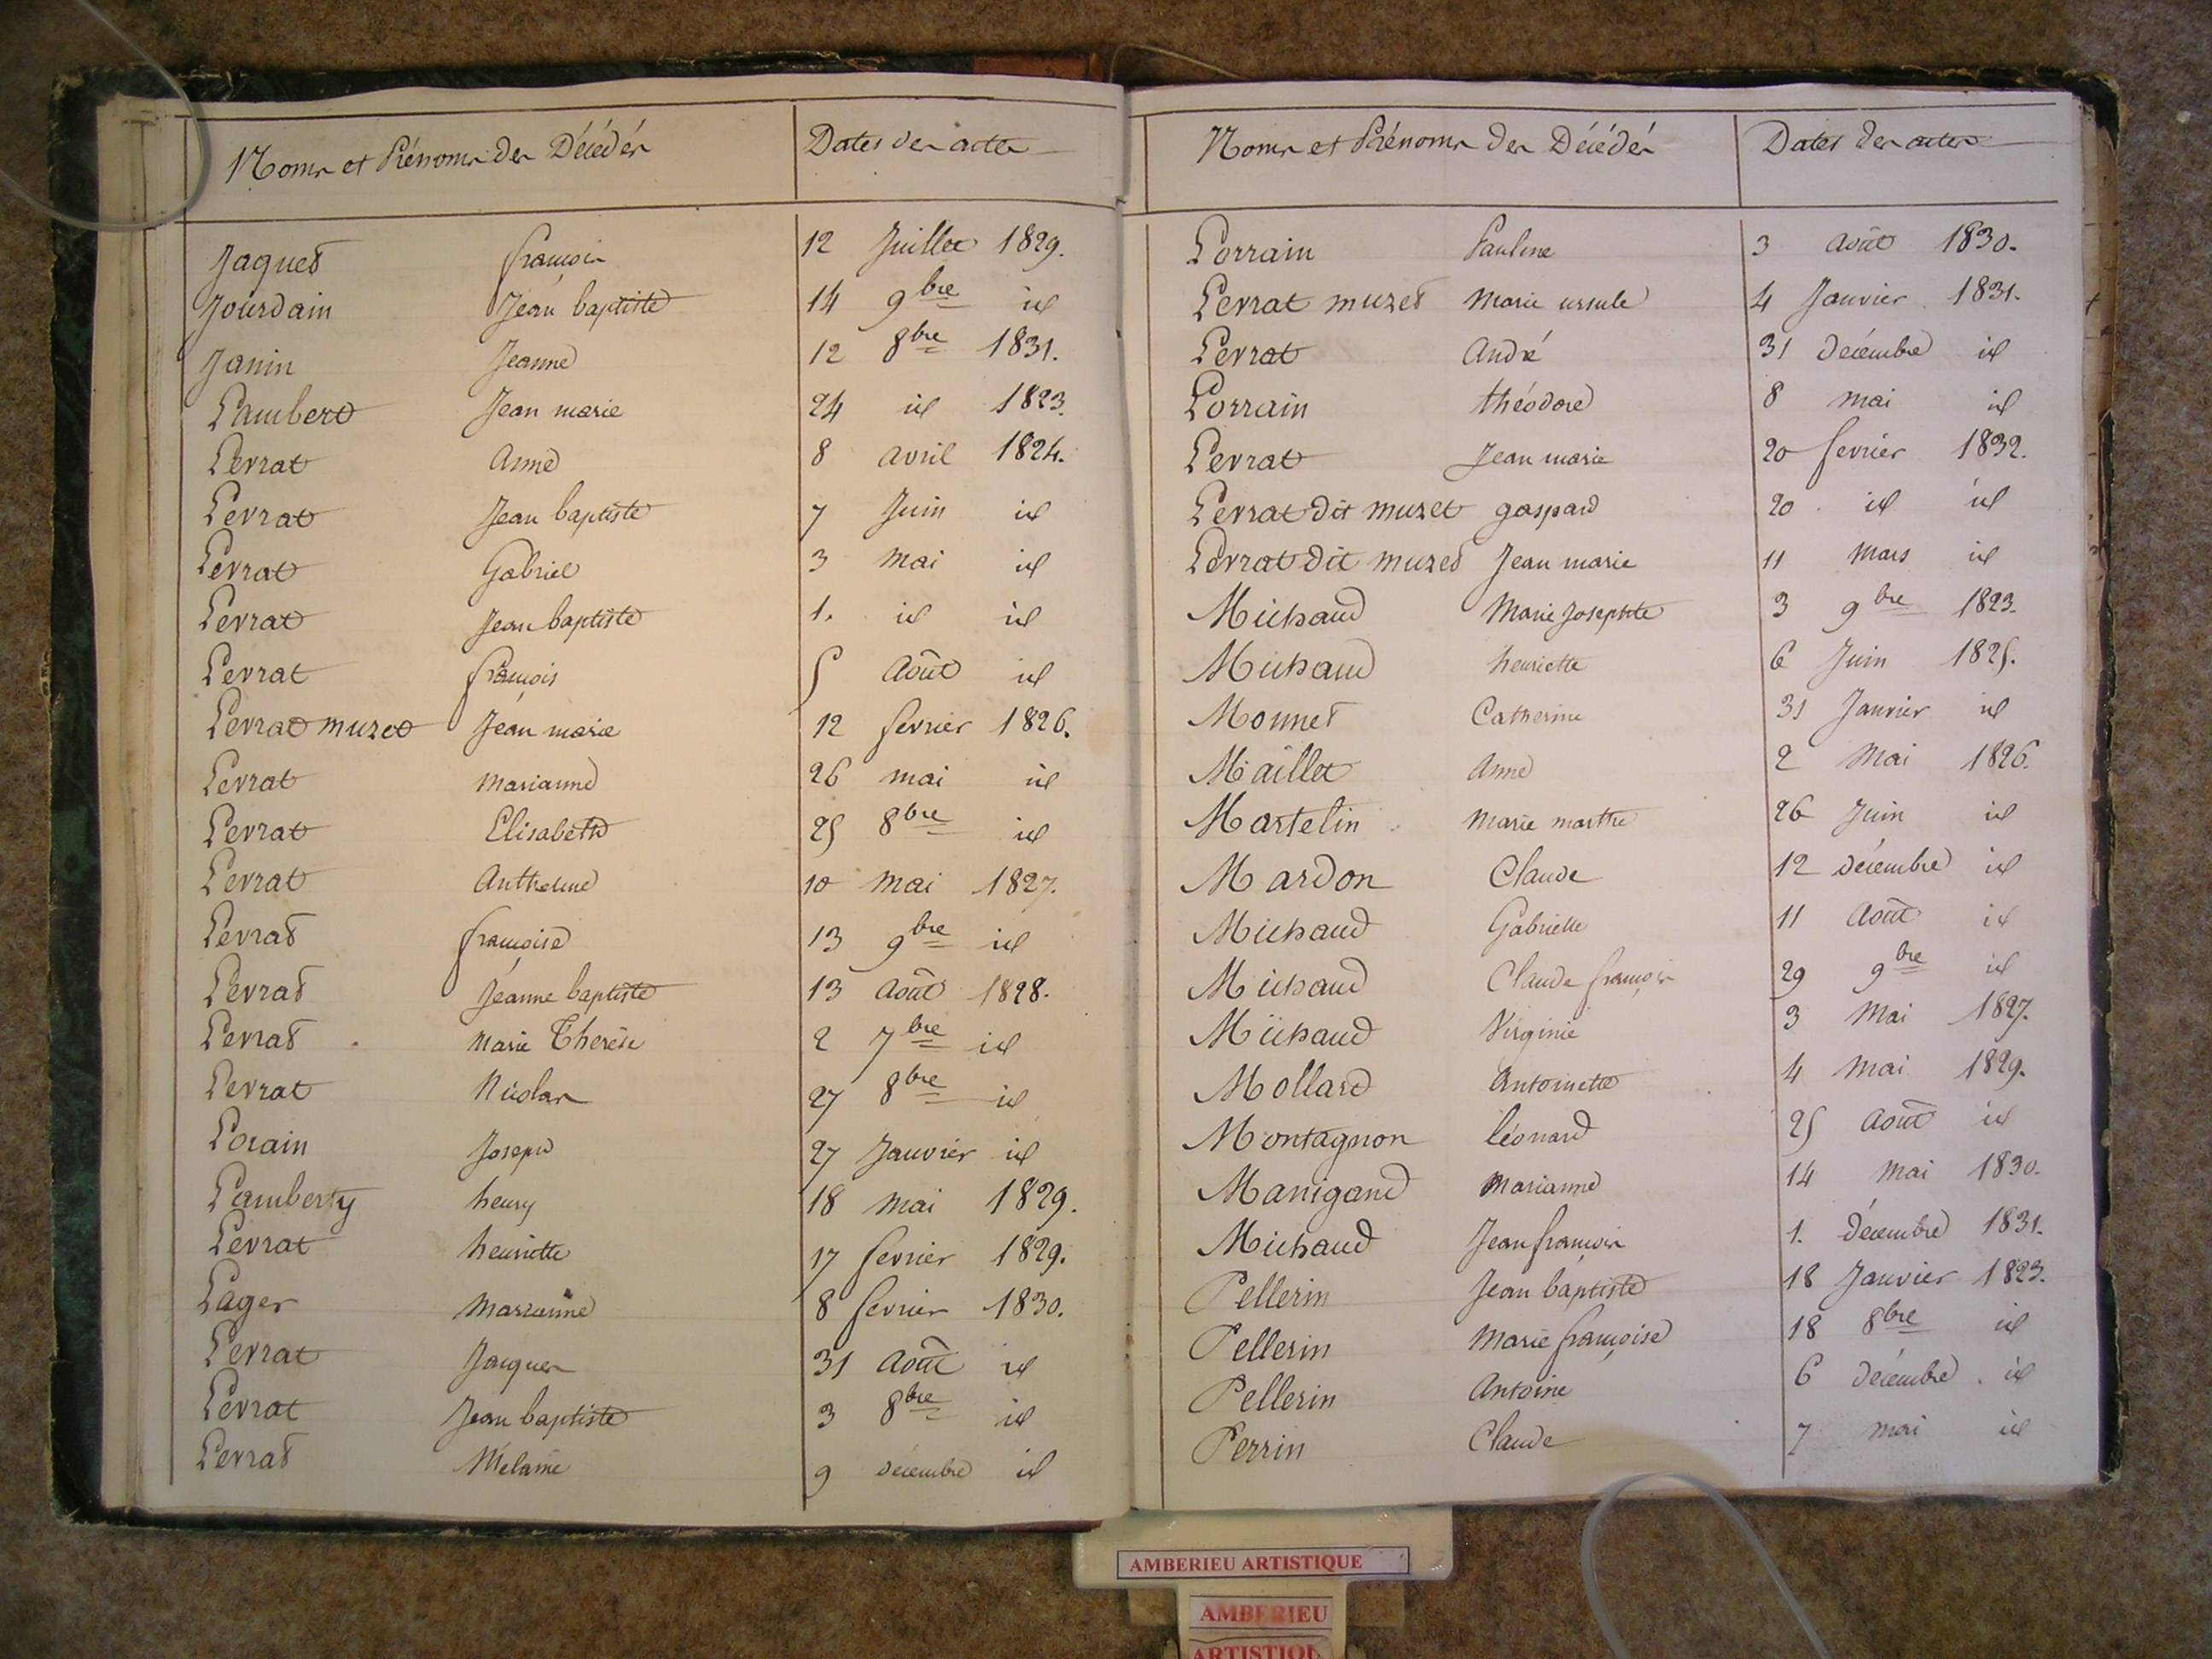 Noms et Prénoms des Décédés Dates des actes
Jaquet françois 12 Juillet 1829.
Jourdain Jean baptiste 14 9bre id
Janin Jeanne 12 8bre 1831.
Lambert Jean marie 24 id 1823.
Levrat Anne 8 avril 1824.
Levrat Jean baptiste 7 Juin id
Levrat Gabriel 3 mai id
Levrat Jean baptiste 1. id id
Levrat françois 5 Août id
Levrat muzet Jean marie 12 fevrier 1826.
Levrat marianne 26 mai id
Levrat Elisabeth 25 8bre id
Levrat Anthelme 10 mai 1827.
Levrat françoise 13 9bre id
Levrat Jeanne baptiste 13 Août 1828.
Levrat Marie Thérèse 2 7bre id
Levrat Nicolas 27 8bre id
Lorain Joseph 27 Janvier id
Lambert henry 18 mai 1829.
Levrat henriette 17 fevrier 1829.
Lager Marianne 8 fevrier 1830.
Levrat Jacques 31 Août id
Levrat Jean baptiste 3 8bre id
Levrat Mélanie 9 décembre id
Noms et Prénoms des Décédés Dates des actes
Lorrain Pauline 3 août 1830.
Levrat muzet Marie ursule 4 Janvier 1831.
Levrat André 31 décembre id
Lorrain théodore 8 mai id
Levrat Jean marie 20 fevrier 1832.
Levrat dit muzet gaspard 20 id id
Levrat dit muzet Jean marie 11 Mars id
Michaud Marie Josephte 3 9bre 1823.
Michaud henriette 6 Juin 1825.
Monnet Catherine 31 Janvier id
Maillet Anne 2 Mai 1826.
Martelin Marie marthe 26 Juin id
Mardon Claude 12 décembre id
Michaud Gabrielle 11 Août id
Michaud Claude françois 29 9bre id
Michaud Virginie 3 Mai 1827.
Mollard Antoinette 4 Mai 1829.
Montagnon léonard 25 Août id
Manigand Marianne 14 Mai 1830.
Michaud Jean françois 1. Décembre 1831.
Pellerin Jean baptiste 18 Janvier 1823.
Pellerin Marie françoise 18 8bre id
Pellerin Antoine 6 décembre id
Perrin Claude 7 mai id
AMBERIEU ARTISTIQUE
AMBERIEU
ARTISTIQU